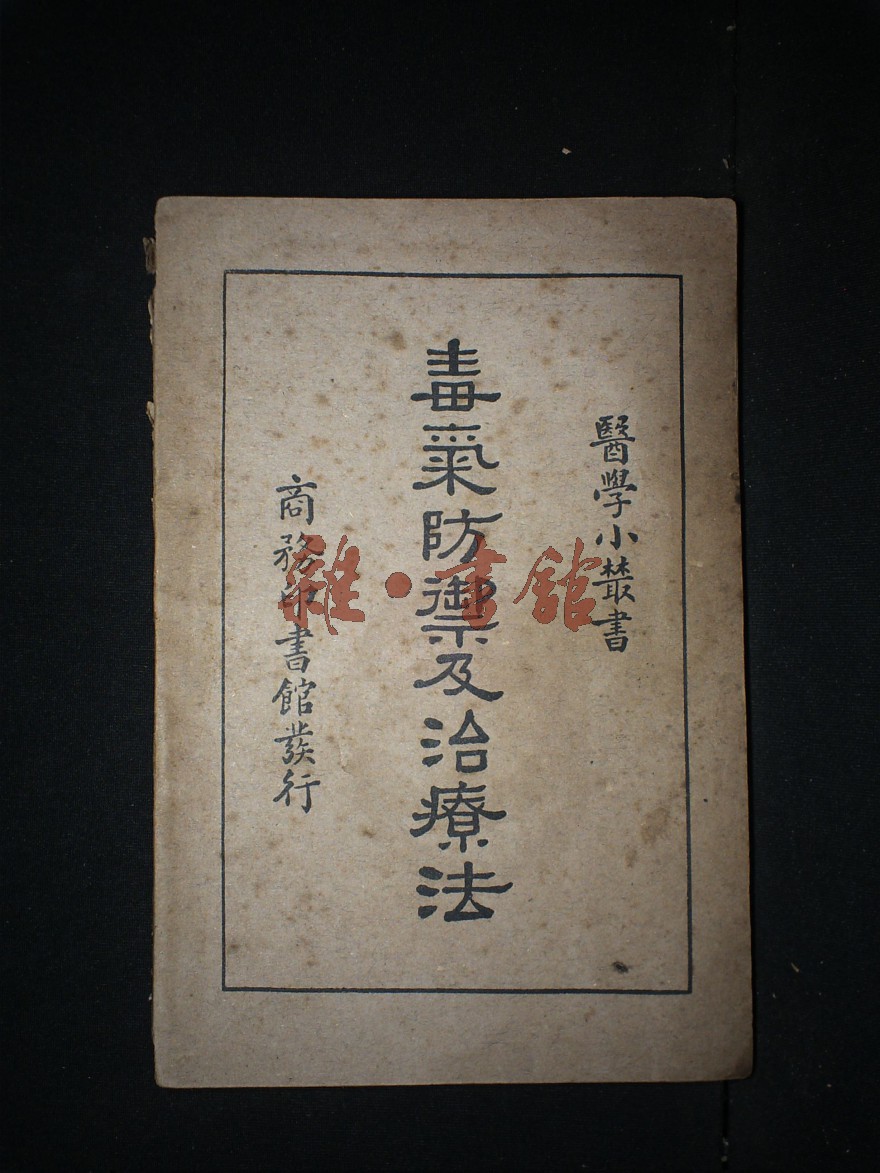 醫學小叢書
毒氣防禦及治療法
商務印書館發行
雜·書館